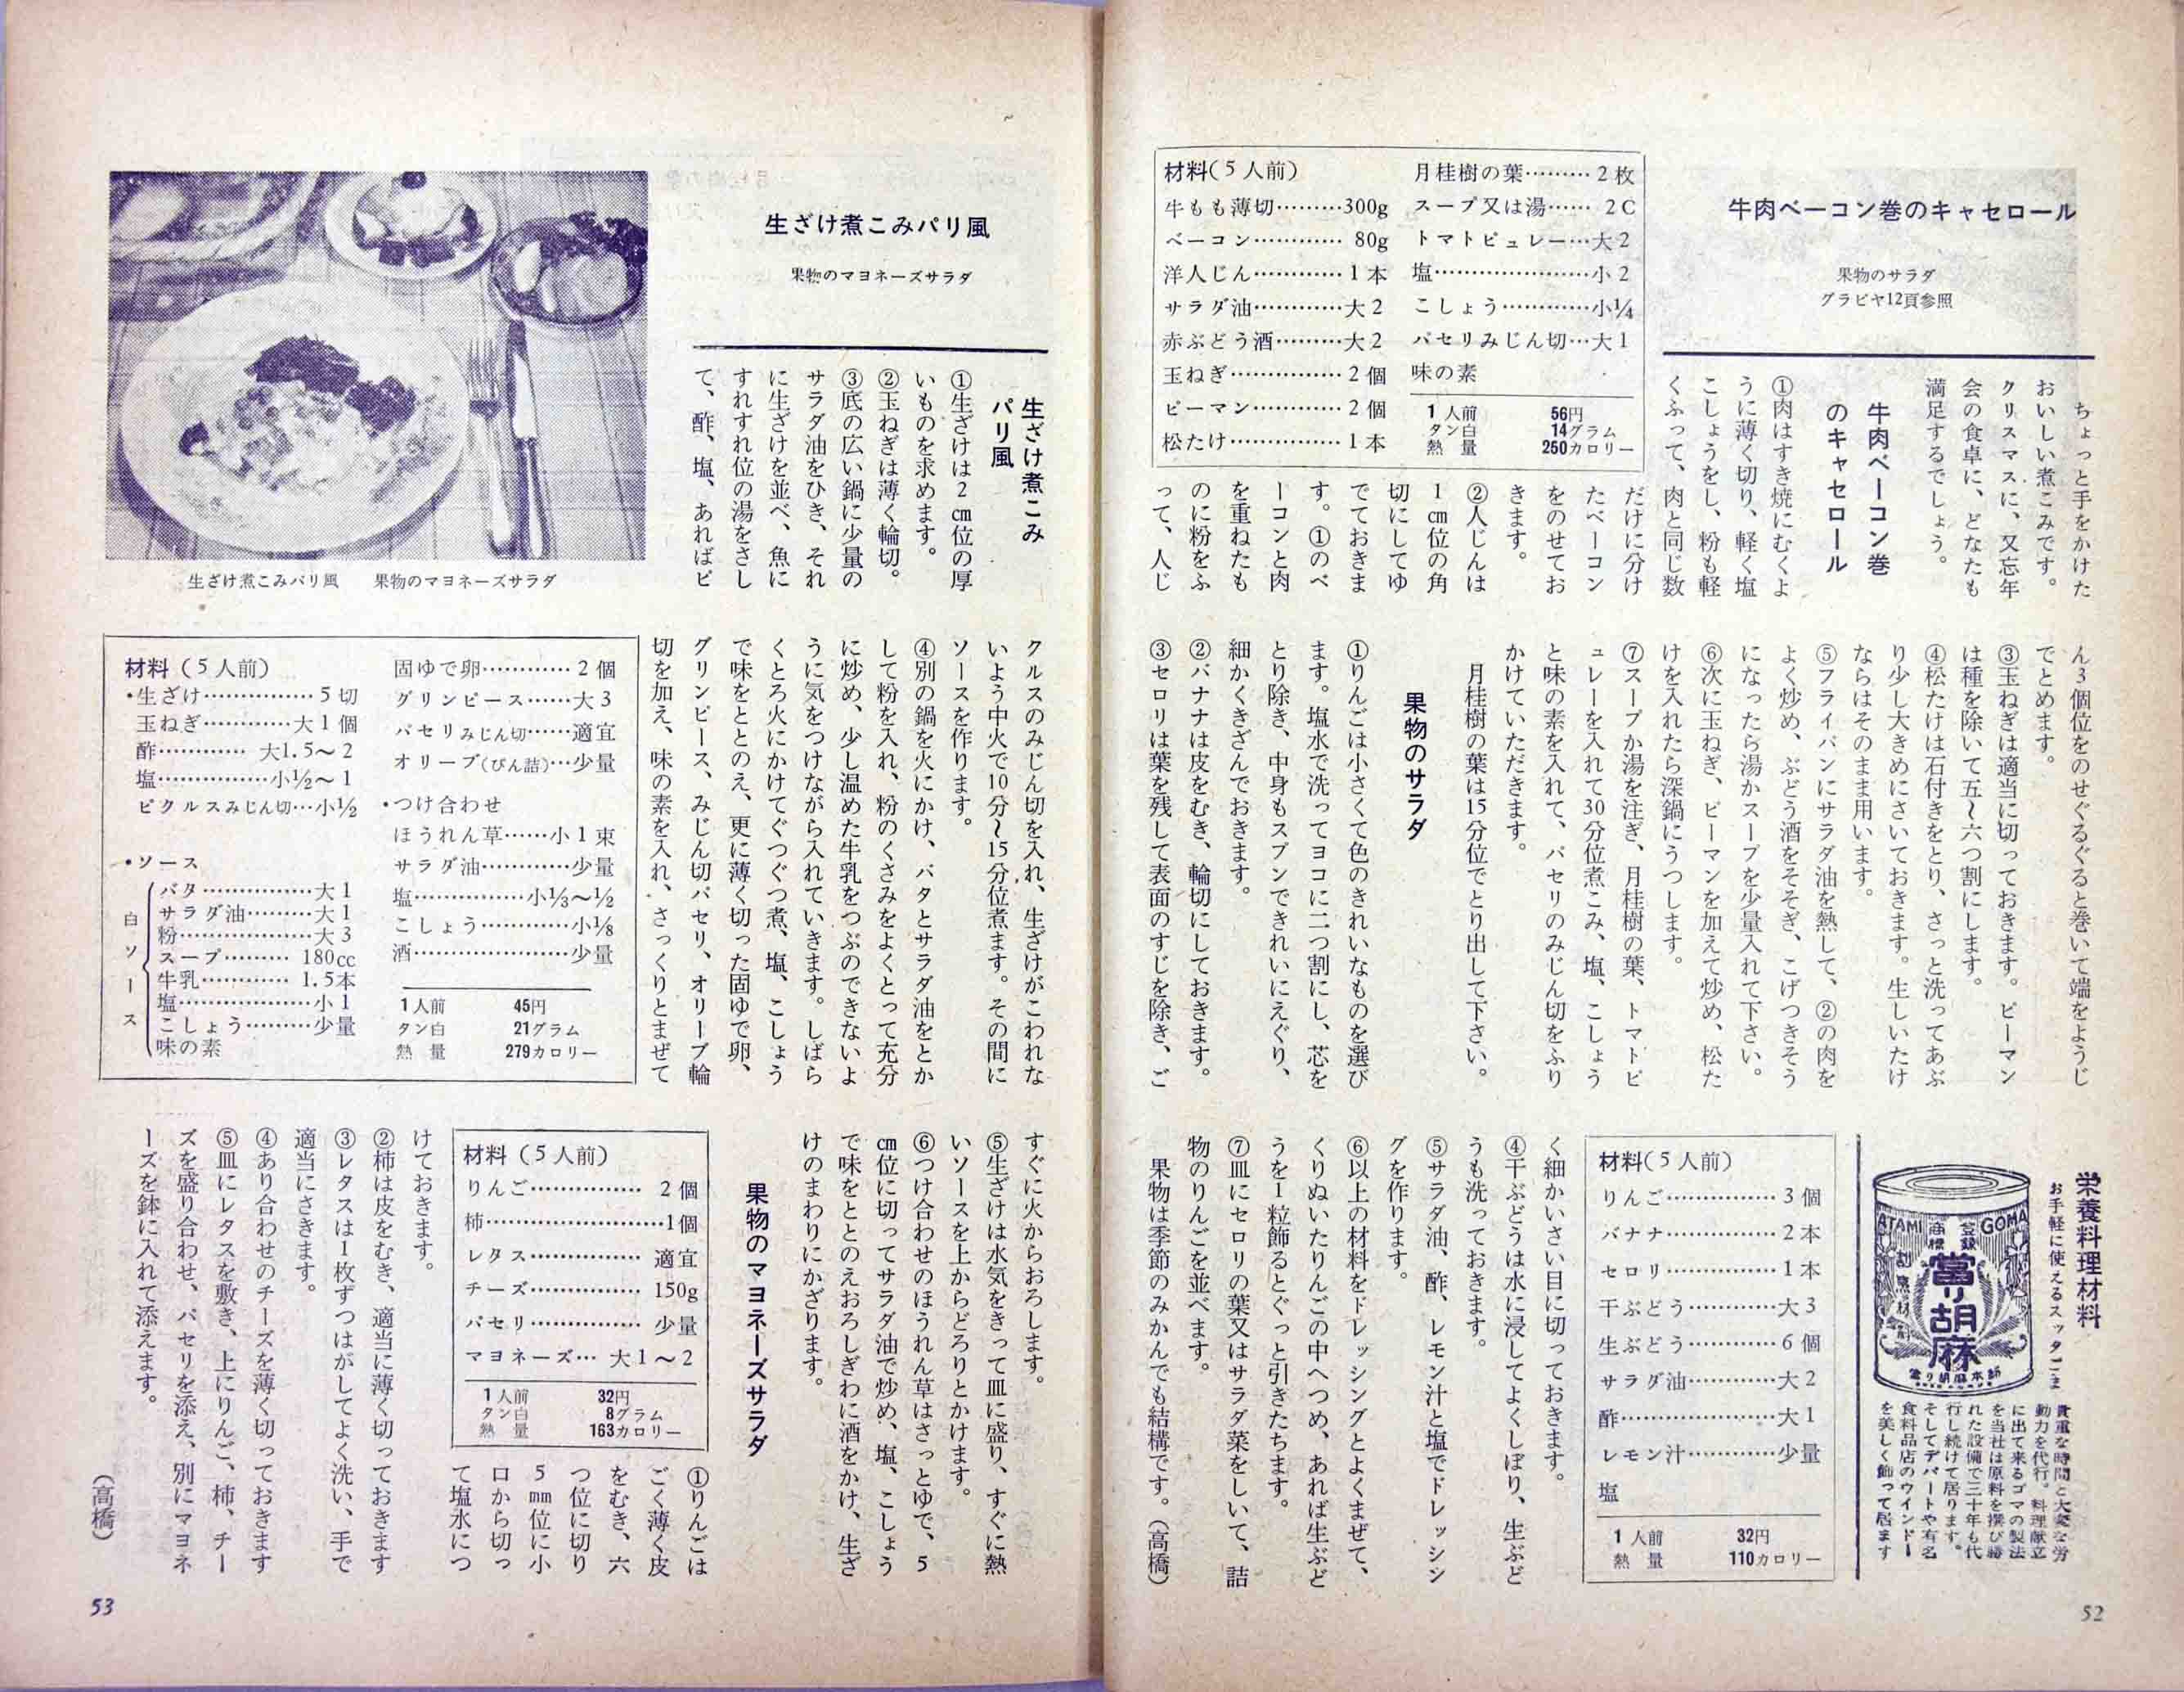 牛肉ベーコン巻のキャセロール
果物のサラダ
グラビヤ12頁参照
材料(5人前)
牛もも薄切………300g
ベーコン………… 80g
洋人じん…………1本
サラダ油…………大2
赤ぶどう酒………大2
玉ねぎ……………2個
ピーマン…………2個
松たけ……………1本
月桂樹の葉………2枚
スープ又は湯…… 2C
トマトピュレー…大2
塩…………………小2
こしょう…………小¼
パセリみじん切…大1
味の素
1人前 56円
タン白 14グラム
熱量 250カロリー
ちょっと手をかけた
おいしい煮こみです。
クリスマスに、又忘年
会の食卓に、どなたも
満足するでしょう。
牛肉ベーコン巻
のキャセロール
①肉はすき焼にむくよ
うに薄く切り、軽く塩
こしょうをし、粉も軽
くふって、肉と同じ数
だけに分け
たベーコン
をのせてお
きます。
②人じんは
1㎝位の角
切にしてゆ
でておきま
す。①のベ
ーコンと肉
を重ねたも
のに粉をふ
って、人じ
ん3個位をのせぐるぐると巻いて端をようじ
でとめます。
③玉ねぎは適当に切っておきます。ピーマン
は種を除いて五〜六つ割にします。
④松たけは石付きをとり、さっと洗ってあぶ
り少し大きめにさいておきます。生しいたけ
ならはそのまま用います。
⑤フライパンにサラダ油を熱して、②の肉を
よく炒め、ぶどう酒をそそぎ、こげつきそう
になったら湯かスープを少量入れて下さい。
⑥次に玉ねぎ、ピーマンを加えて炒め、松た
けを入れたら深鍋にうつします。
⑦スープか湯を注ぎ、月桂樹の葉、トマトピ
ュレーを入れて30分位煮こみ、塩、こしょう
と味の素を入れて、パセリのみじん切をふり
かけていただきます。
月桂樹の葉は15分位でとり出して下さい。
果物のサラダ
①りんごは小さくて色のきれいなものを選び
ます。塩水で洗ってヨコに二つ割にし、芯を
とり除き、中身もスプンできれいにえぐり、
細かくきざんでおきます。
②バナナは皮をむき、輪切にしておきます。
③セロリは葉を残して表面のすじを除き、ご
く細かいさい目に切っておきます。
④干ぶどうは水に浸してよくしぼり、生ぶど
うも洗っておきます。
⑤サラダ油、酢、レモン汁と塩でドレッシン
グを作ります。
⑥以上の材料をドレッシングとよくまぜて、
くりぬいたりんごの中へつめ、あれば生ぶど
うを1粒飾るとぐっと引きたちます。
⑦皿にセロリの葉又はサラダ菜をしいて、詰
物のりんごを並べます。
果物は季節のみかんでも結構です。(高橋)
材料(5人前)
りんご……………3個
バナナ……………2本
セロリ……………1本
干ぶどう…………大3
生ぶどう…………6個
サラダ油…………大2
酢…………………大1
レモン汁…………少量
塩
1人前 32円
熱量 110カロリー
栄養料理材料
お手軽に使えるスッタごま
ATAMI GOMA
商標 登録
當り胡麻
當り胡麻本舗
貴重な時間と大変な労
動力を代行。料理献立
に出て来るゴマの製法
を当社は原料を撰び勝
れた設備で三十年も代
行し続けて居ります。
そしてデパートや有名
食料品店のウインドー
を美しく飾って居ます
52
生ざけ煮こみパリ風
果物のマヨネーズサラダ
生ざけ煮こみパリ風 果物のマヨネーズサラダ
生ざけ煮こみ
パリ風
①生ざけは2㎝位の厚
いものを求めます。
②玉ねぎは薄く輪切。
③底の広い鍋に少量の
サラダ油をひき、それ
に生ざけを並べ、魚に
すれすれ位の湯をさし
て、酢、塩、あればピ
クルスのみじん切を入れ、生ざけがこわれな
いよう中火で10分〜15分位煮ます。その間に
ソースを作ります。
④別の鍋を火にかけ、バタとサラダ油をとか
して粉を入れ、粉のくさみをよくとって充分
に炒め、少し温めた牛乳をつぶのできないよ
うに気をつけながら入れていきます。しばら
くとろ火にかけてぐつぐつ煮、塩、こしょう
で味をととのえ、更に薄く切った固ゆで卵、
グリンピース、みじん切パセリ、オリーブ輪
切を加え、味の素を入れ、さっくりとまぜて
すぐに火からおろします。
⑤生ざけは水気をきって皿に盛り、すぐに熱
いソースを上からどろりとかけます。
⑥つけ合わせのほうれん草はさっとゆで、5
㎝位に切ってサラダ油で炒め、塩、こしょう
で味をととのえおろしぎわに酒をかけ、生ざ
けのまわりにかざります。
材料(5人前)
・生ざけ……………5切
玉ねぎ…………大1個
酢………… 大1.5〜2
塩……………小½〜1
ピクルスみじん切…小½
・ソース
白ソース
バタ……………大1
サラダ油………大1
粉………………大3
スープ……… 180cc
牛乳………… 1.5本
塩………………小1
こしょう………少量
味の素
固ゆで卵…………2個
グリンピース……大3
パセリみじん切……適宜
オリーブ(びん詰)…少量
・つけ合わせ
ほうれん草……小1束
サラダ油…………少量
塩……………小⅓〜½
こしょう…………小⅛
酒…………………少量
1人前 45円
タン白 21グラム
熱量 279カロリー
果物のマヨネーズサラダ
材料(5人前)
りんご…………… 2個
柿……………………1個
レタス…………… 適宜
チーズ…………… 150g
パセリ…………… 少量
マヨネーズ… 大1〜2
1人前 32円
タン白 8グラム
熱量 163カロリー
①りんごは
ごく薄く皮
をむき、六
つ位に切り
5㎜位に小
口から切っ
て塩氷につ
けておきます。
②柿は皮をむき、適当に薄く切っておきます
③レタスは1枚ずつはがしてよく洗い、手で
適当にさきます。
④あり合わせのチーズを薄く切っておきます
⑤皿にレタスを敷き、上にりんご、柿、チー
ズを盛り合わせ、パセリを添え、別にマヨネ
ーズを鉢に入れて添えます。
(高橋)
53